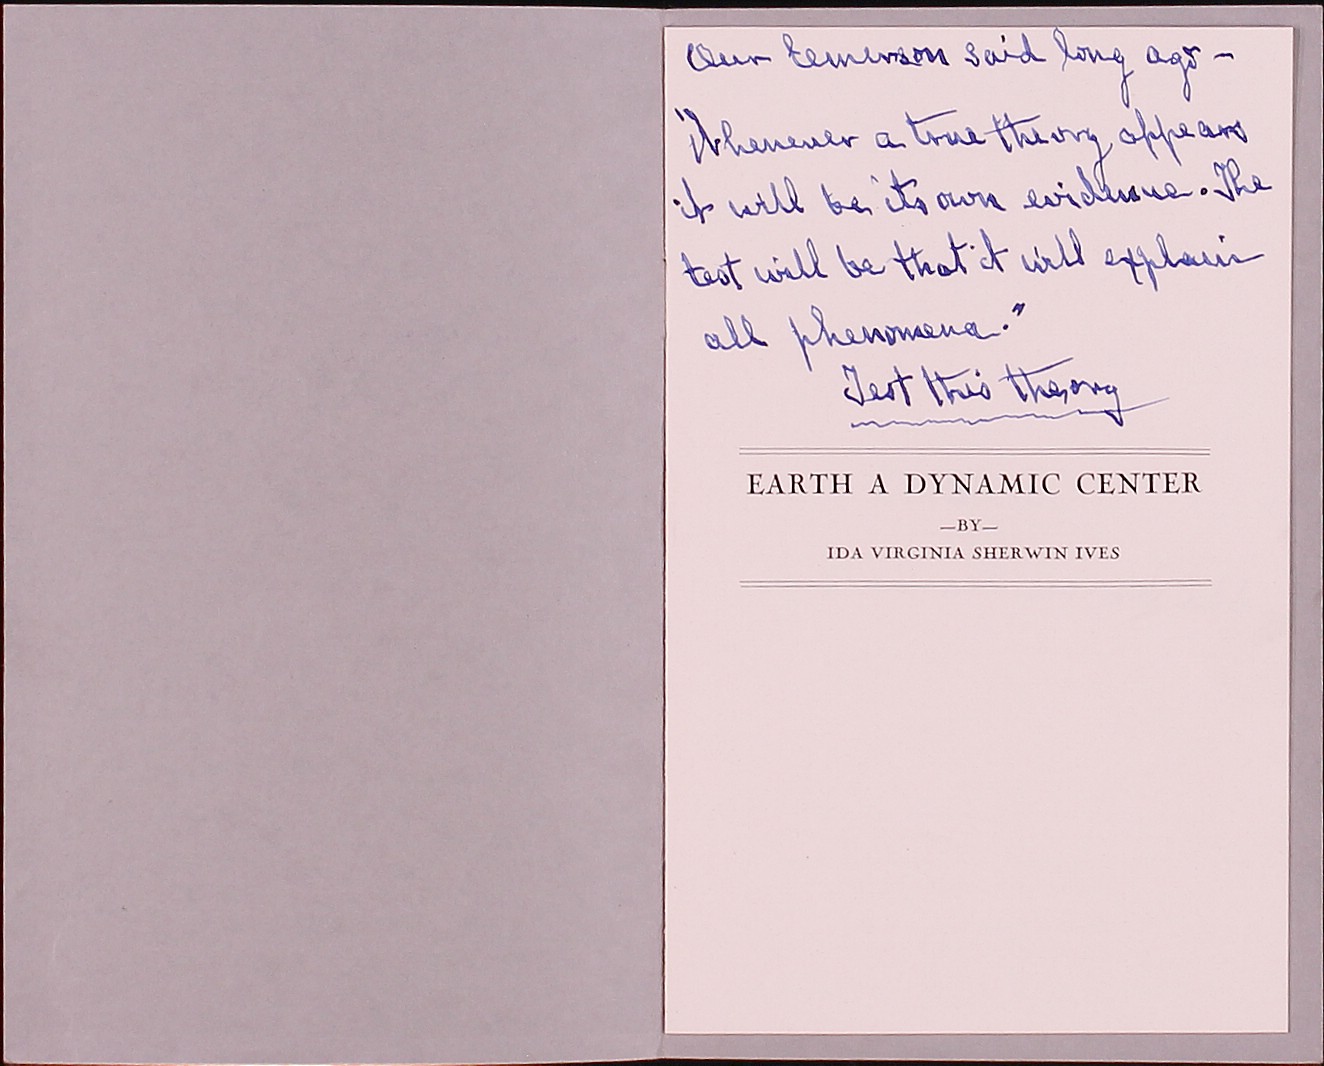 Our Emerson said long ago –
"Whenever a true theory appears
it will be its own evidence. The
test will be that it will explain
all phenomena."
Test this theory
EARTH A DYNAMIC CENTER
—BY—
IDA VIRGINIA SHERWIN IVES